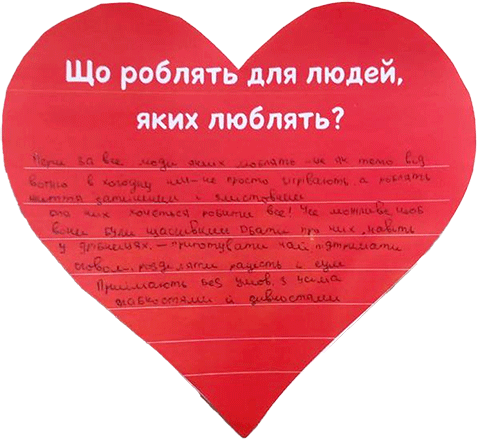 Що роблять для людей,
яких люблять?
Перш за все люди яких люблять – це як тепло від
вогню в холодну ніч – не просто зігрівають, а роблять
життя затишним і змістовним
Для них хочеться робити все! Все можливе, щоб
вони були щасливими Дбати про них навіть
у дрібницях, – приготувати чай підтримати
словом, розділяти радість і сум
Приймають без умов, з усіма
слабкостями й дивностями